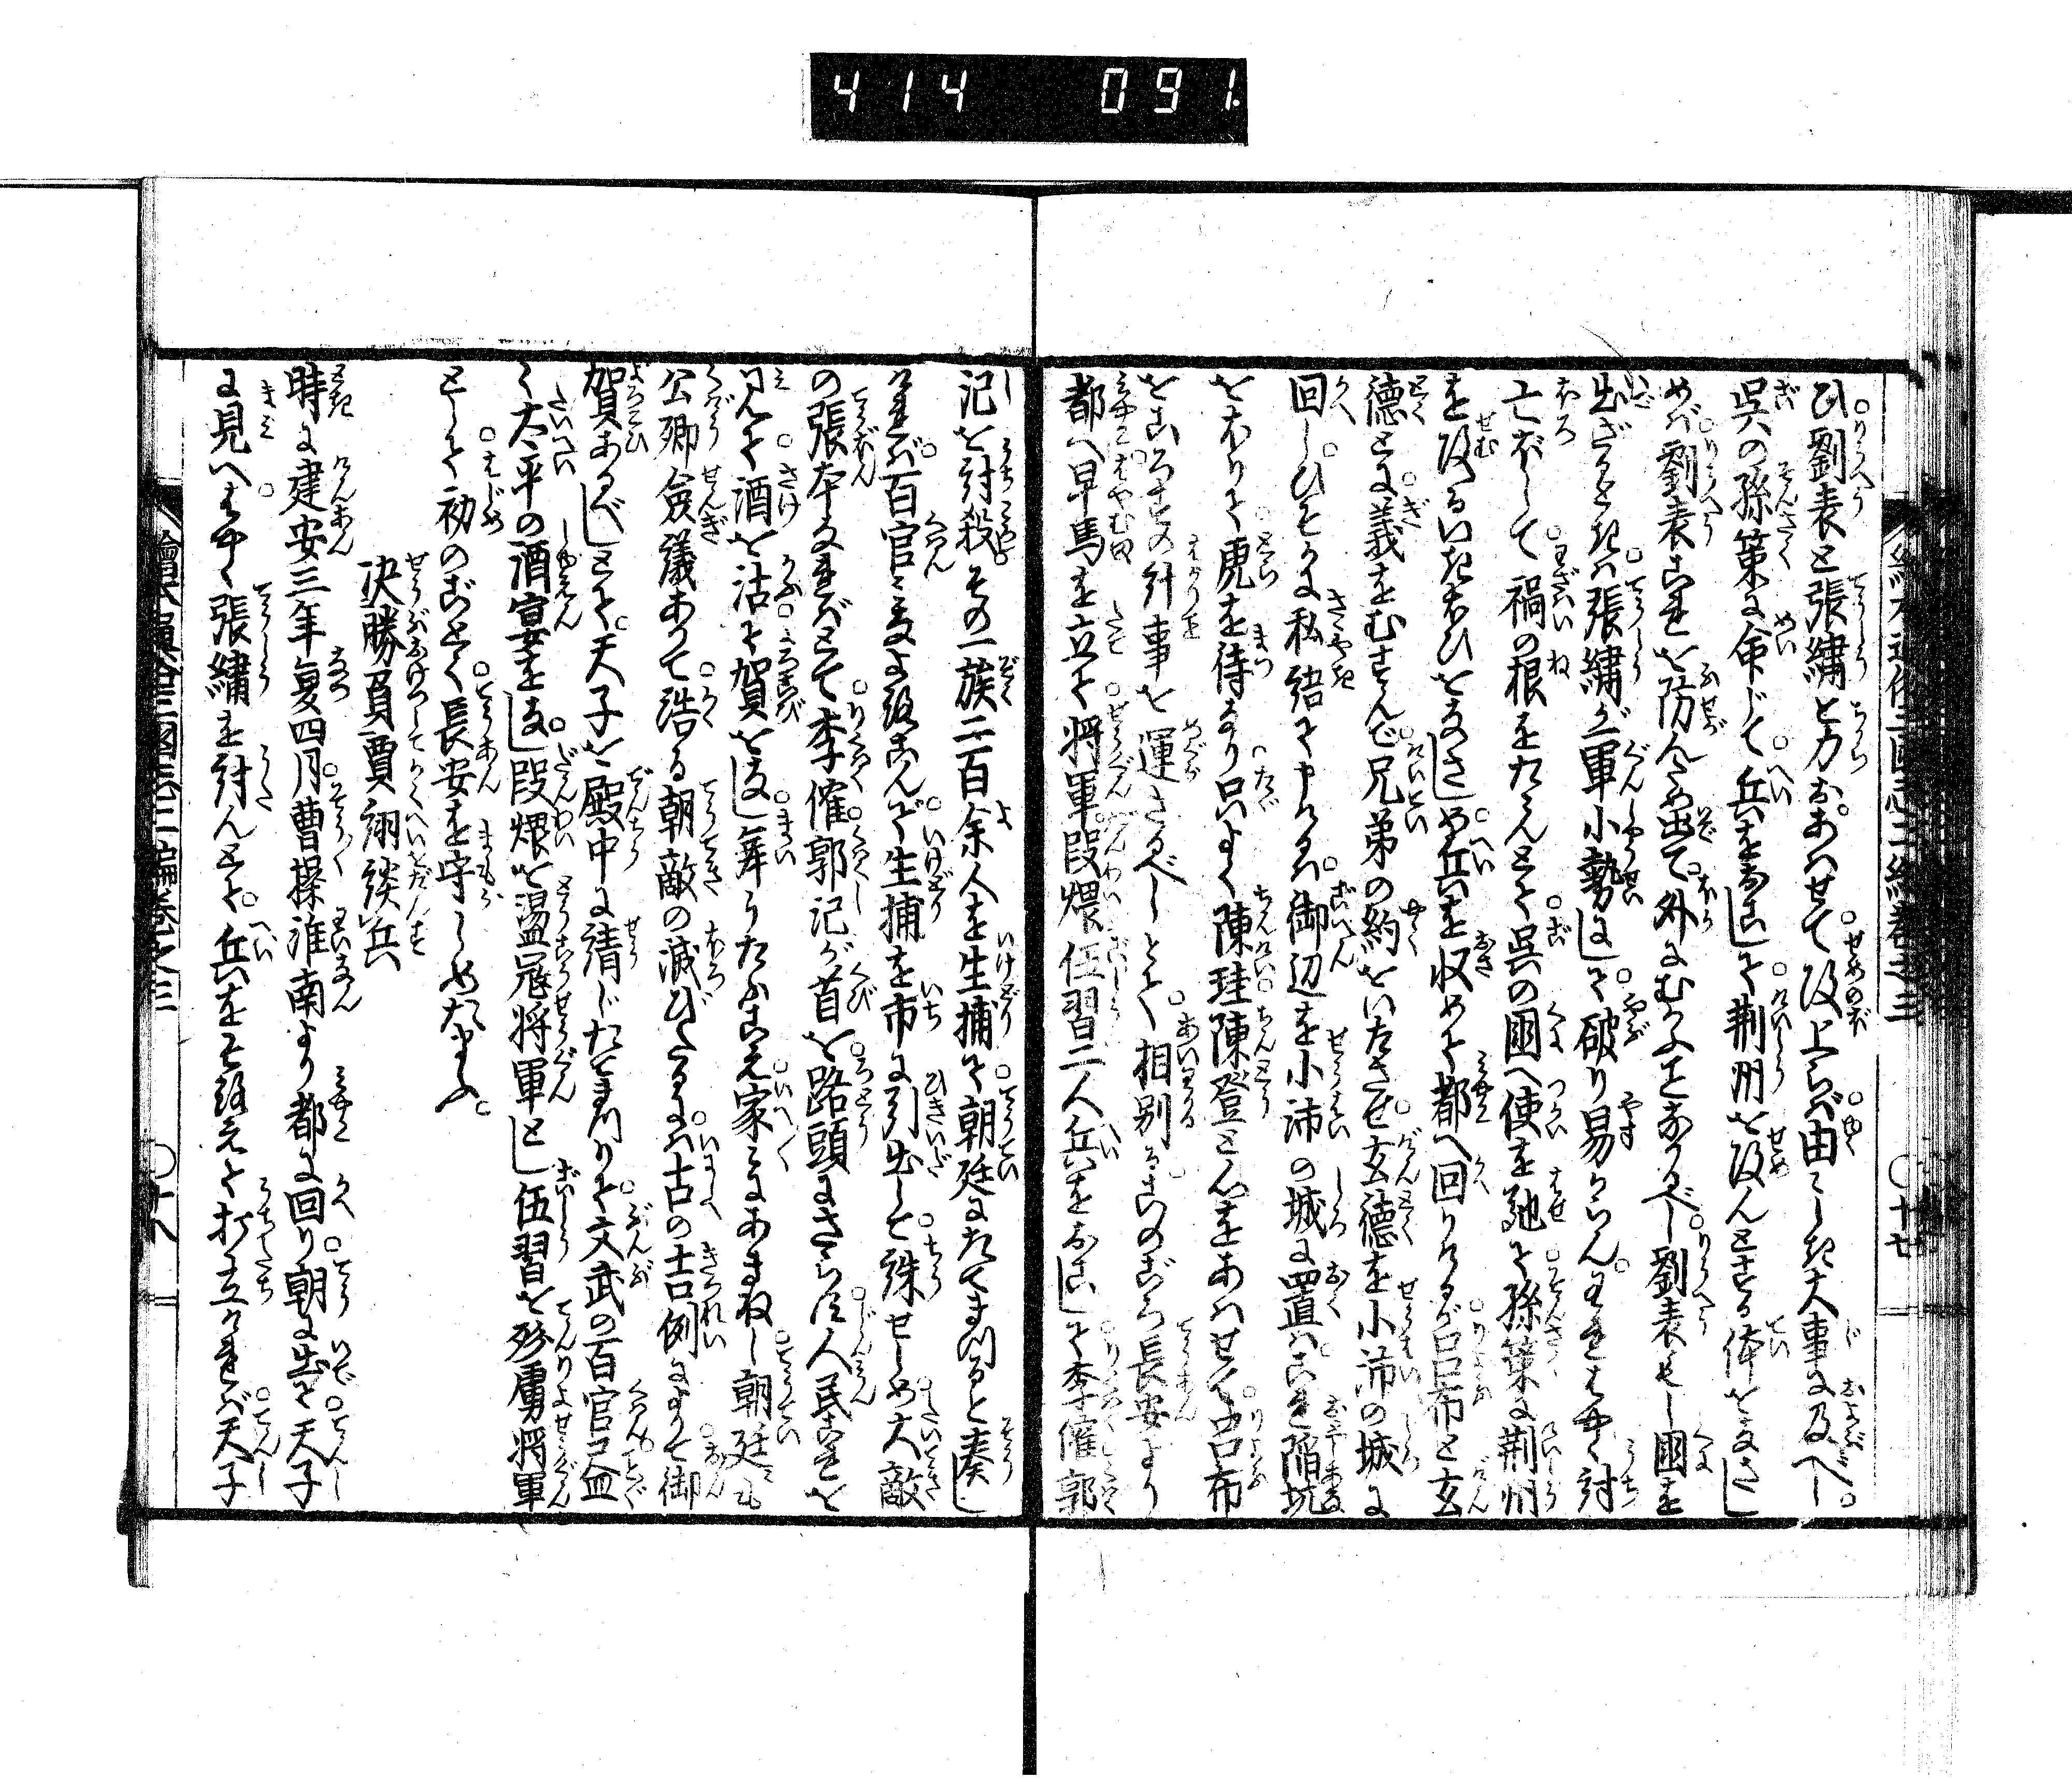 414 091
繪本通俗三國志二編卷之三 〇十七
ひ劉表と張繡と力をあハせて攻上らバ由〻しき大事に及べし。
呉の孫策に命じて兵をおこして荆州を攻んとする体をミなさし
めバ劉表これを防んため出て外にむかふことあるべし劉表もし國を
出ざるときハ張繡が軍小勢にして破り易からんわれはやく討
亡ぼして禍の根をたえんとて呉の國へ使を馳て孫策に荆州
を攻るいきおひをなさしめ兵を収めて都へ回りけるが呂布と玄
德とに義をむすんで兄弟の約をいたさせ玄德を小沛の城に
回しひそかに私語て申けるハ御辺を小沛の城に置ハこれ陥坑
をほりて虎を待なり只よく陳珪陳登と心をあハせて呂布
をころすの計事を運さるべしとて相別るこのごろ長安より
都へ早馬を立て將軍段煨伍習二人兵をおこして李傕郭
汜を討殺その一族二百余人を生捕て朝廷にたてまつると奏し
ければ百官ミなよろこんで生捕を市に引出して誅せしめ大敵
の張本なればとて李傕郭汜が首を路頭にさらす人民これを
見て酒を沽て賀をなし舞うたふこえ家〻にあまねし朝廷にも
公卿僉議ありて浩る朝敵の滅びたるにハ古の吉例によりて御
賀あるべしとて天子を殿中に請じたてまつりて文武の百官〻盒
く太平の酒宴をなし段煨を盪寇將軍とし伍習を殄虜將軍
として初のごとく長安を守しめたまふ。
決勝負賈詡談兵
時に建安三年夏四月曹操淮南より都に回り朝に出て天子
に見へはやく張繡を討んとて兵をそろえて打立ければ天子
繪本通俗三國志二編卷之三 〇十八